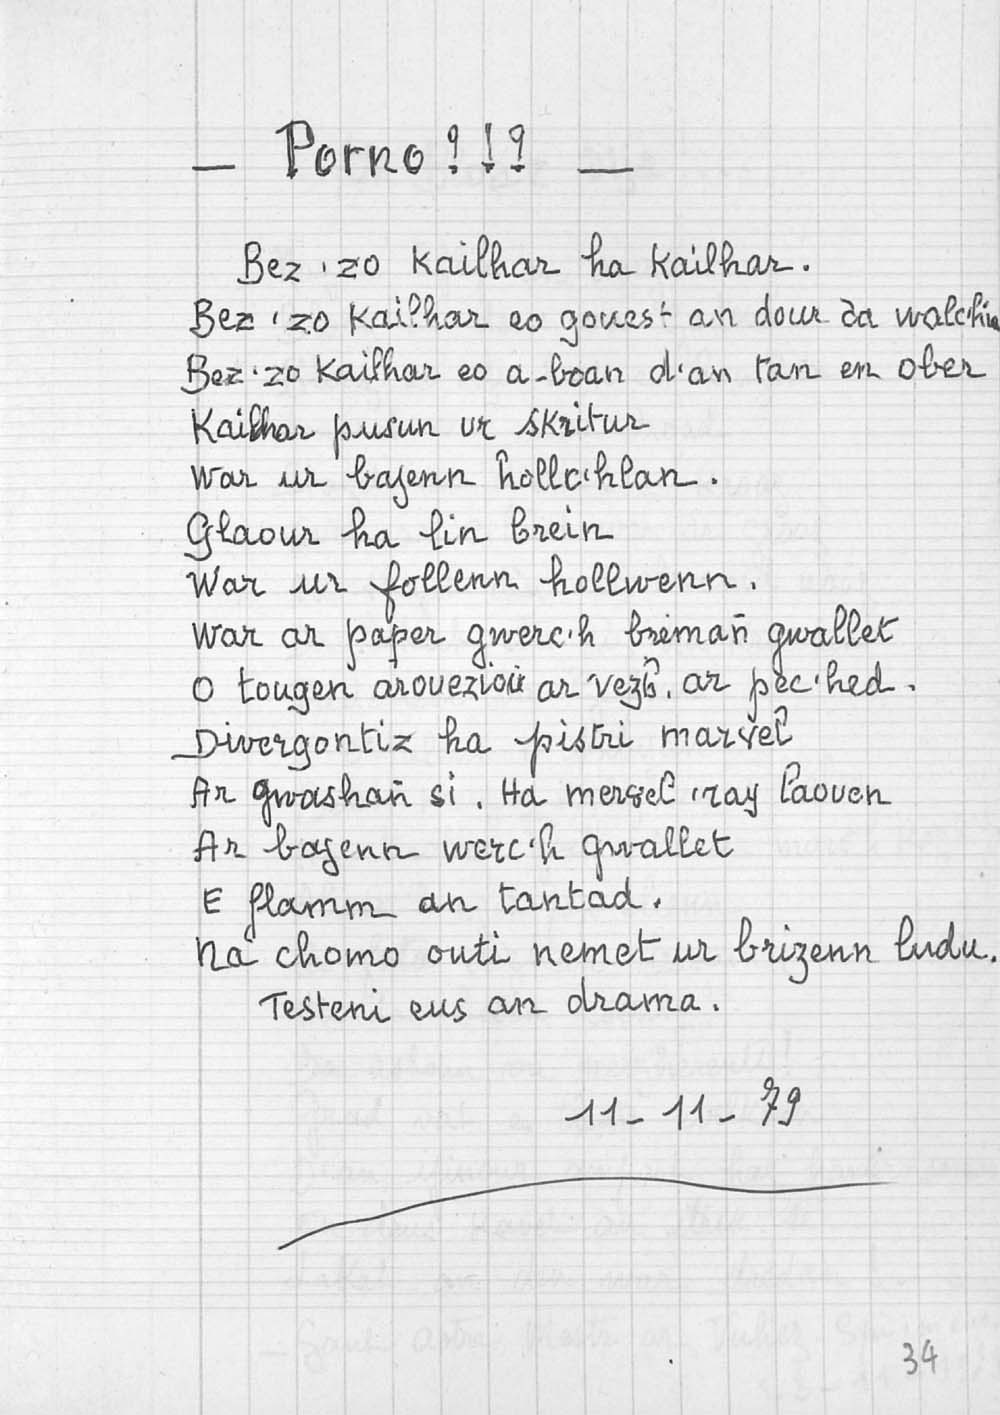 — Porno ! ! ! —
Bez 'zo kailhar ha kailhar.
Bez 'zo kailhar eo gouest an dour da walc'hin
Bez 'zo kailhar eo a-boan d'an tan en ober
Kailhar pusun ur skritur
War ur bajenn hollc'hlan.
Glaour ha lin brein
War ur follenn hollwenn.
War ar paper gwerc'h bremañ gwallet
O tougen arouezioù ar vezh, ar pec'hed.
Divergontiz ha pistri marvel
Ar gwashañ si. Ha mersel 'ray laouen
Ar bajenn werc'h gwallet
E flamm an tantad.
Na chomo outi nemet ur brizenn ludu.
Testeni eus an drama.
11-11-79
34